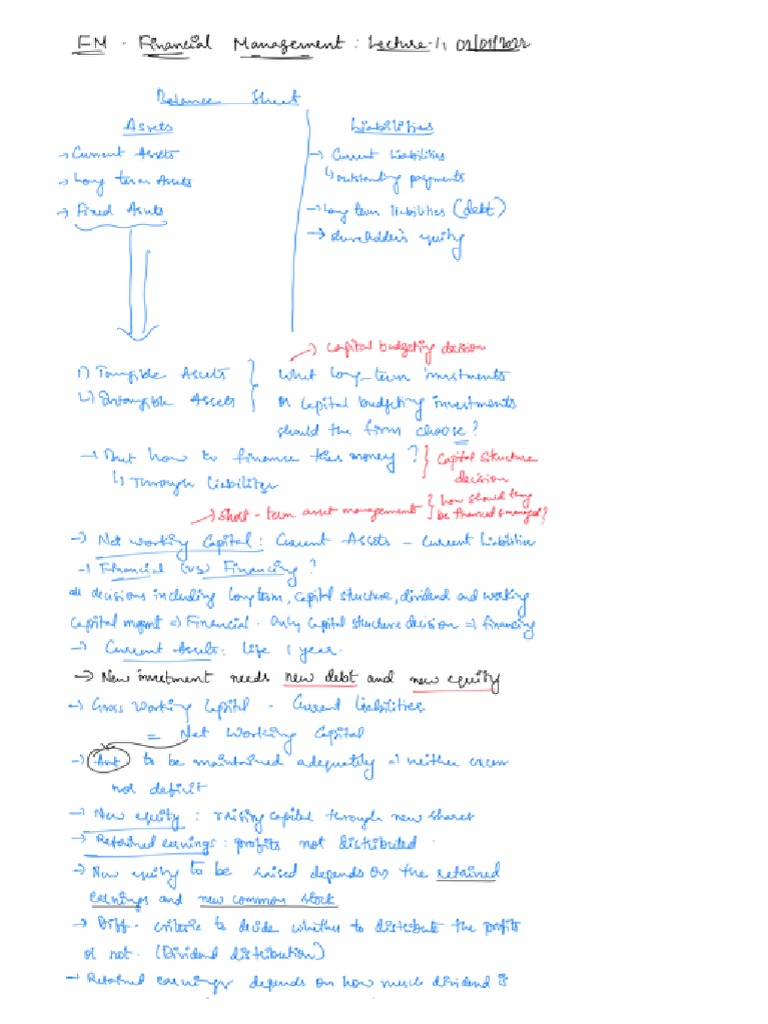 FM - Financial Management : Lecture-1, 02/01/2022
Balance Sheet
Assets
→ Current Assets
→ Long term Assets
→ Fixed Assets
Liabilities
→ Current Liabilities
↳ outstanding payments
→ Long term liabilities (debt)
→ Shareholder's equity
→ Capital budgeting decision
1) Tangible Assets
2) Intangible Assets
What long-term investments
or capital budgeting investments
should the firm choose?
→ But how to finance this money ?
↳ Through Liabilities
Capital Structure
decision
→ Short-term asset management
how should they
be financed & managed?
→ Net working Capital : Current Assets - Current Liabilities
→ Financial (vs) Financing ?
all decisions including long term, capital structure, dividend and working
Capital mgmt ⇒ Financial. Only capital structure decision ⇒ financing
→ Current Assets: life 1 year.
→ New investment needs new debt and new equity
→ Gross Working Capital - Current Liabilities
= Net Working Capital
→ Amt to be maintained adequately ⇒ neither excess
nor deficit
→ New equity : raising capital through new shares
→ Retained earnings : profits not distributed.
→ New equity to be raised depends on the retained
earnings and new common stock
→ Diff. criteria to decide whether to distribute the profits
or not. (Dividend distribution)
→ Retained earnings depends on how much dividend is